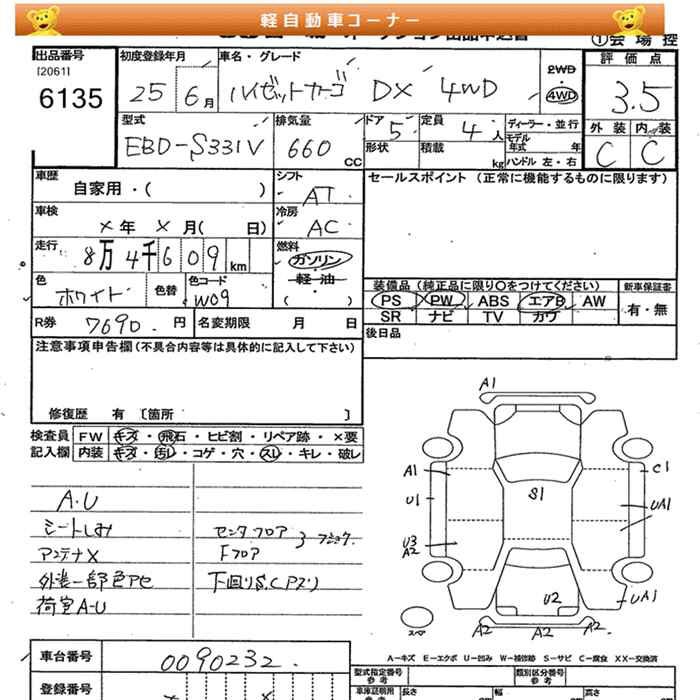 軽自動車コーナー
①会場控
出品番号
[2061]
6135
初度登録年月
25 6月
車名・グレード
ハイゼットカーゴ DX 4WD
2WD
4WD
評価点
3.5
外装 内装
C C
型式
EBD-S331V
排気量
660 CC
ドア
5
形状
定員
4人
積載 kg
ディーラー・並行
モデル年式 年
ハンドル 左・右
車歴
自家用・( )
シフト
AT
セールスポイント (正常に機能するものに限ります)
車検
×年 ×月( 日)
冷房
AC
走行
8万4千609 km
燃料
ガソリン
軽油
( )
色
ホワイト
色替
色コード
W09
装備品 (純正品に限り○をつけてください)
新車保証書
PS PW ABS エアB AW
有・無
SR ナビ TV カワ
R券 7690. 円
名変期限 月 日
後日品
注意事項申告欄(不具合内容等は具体的に記入して下さい)
修復歴 有 [箇所 ]
検査員
記入欄
FW キズ・飛石・ヒビ割・リペア跡・×要
内装 キズ・汚レ・コゲ・穴・スレ・キレ・破レ
A・U
シートしみ
アンテナX
外装一部色アセ
荷室A-U
センタフロア
Fフロア
下回りS.C(Pスリ)
A1
A1
U1
U3
A2
S1
C1
UA1
U2
UA1
スペア
A2 A2 A2
A-キズ E-エクボ U-凹み W-補修跡 S-サビ C-腐食 XX-交換済
車台番号
0090232
登録番号
型式指定番号
参考
類別区分番号
参考
車庫証明用
参考
長さ cm
幅 cm
高さ cm